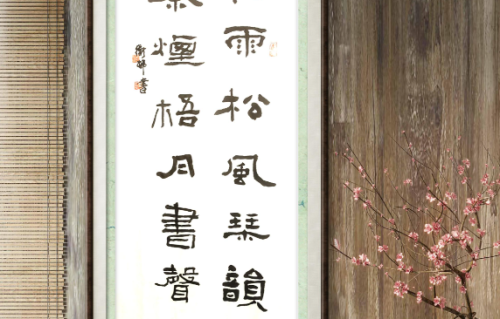 雨松風琴韻
煙梧月書聲